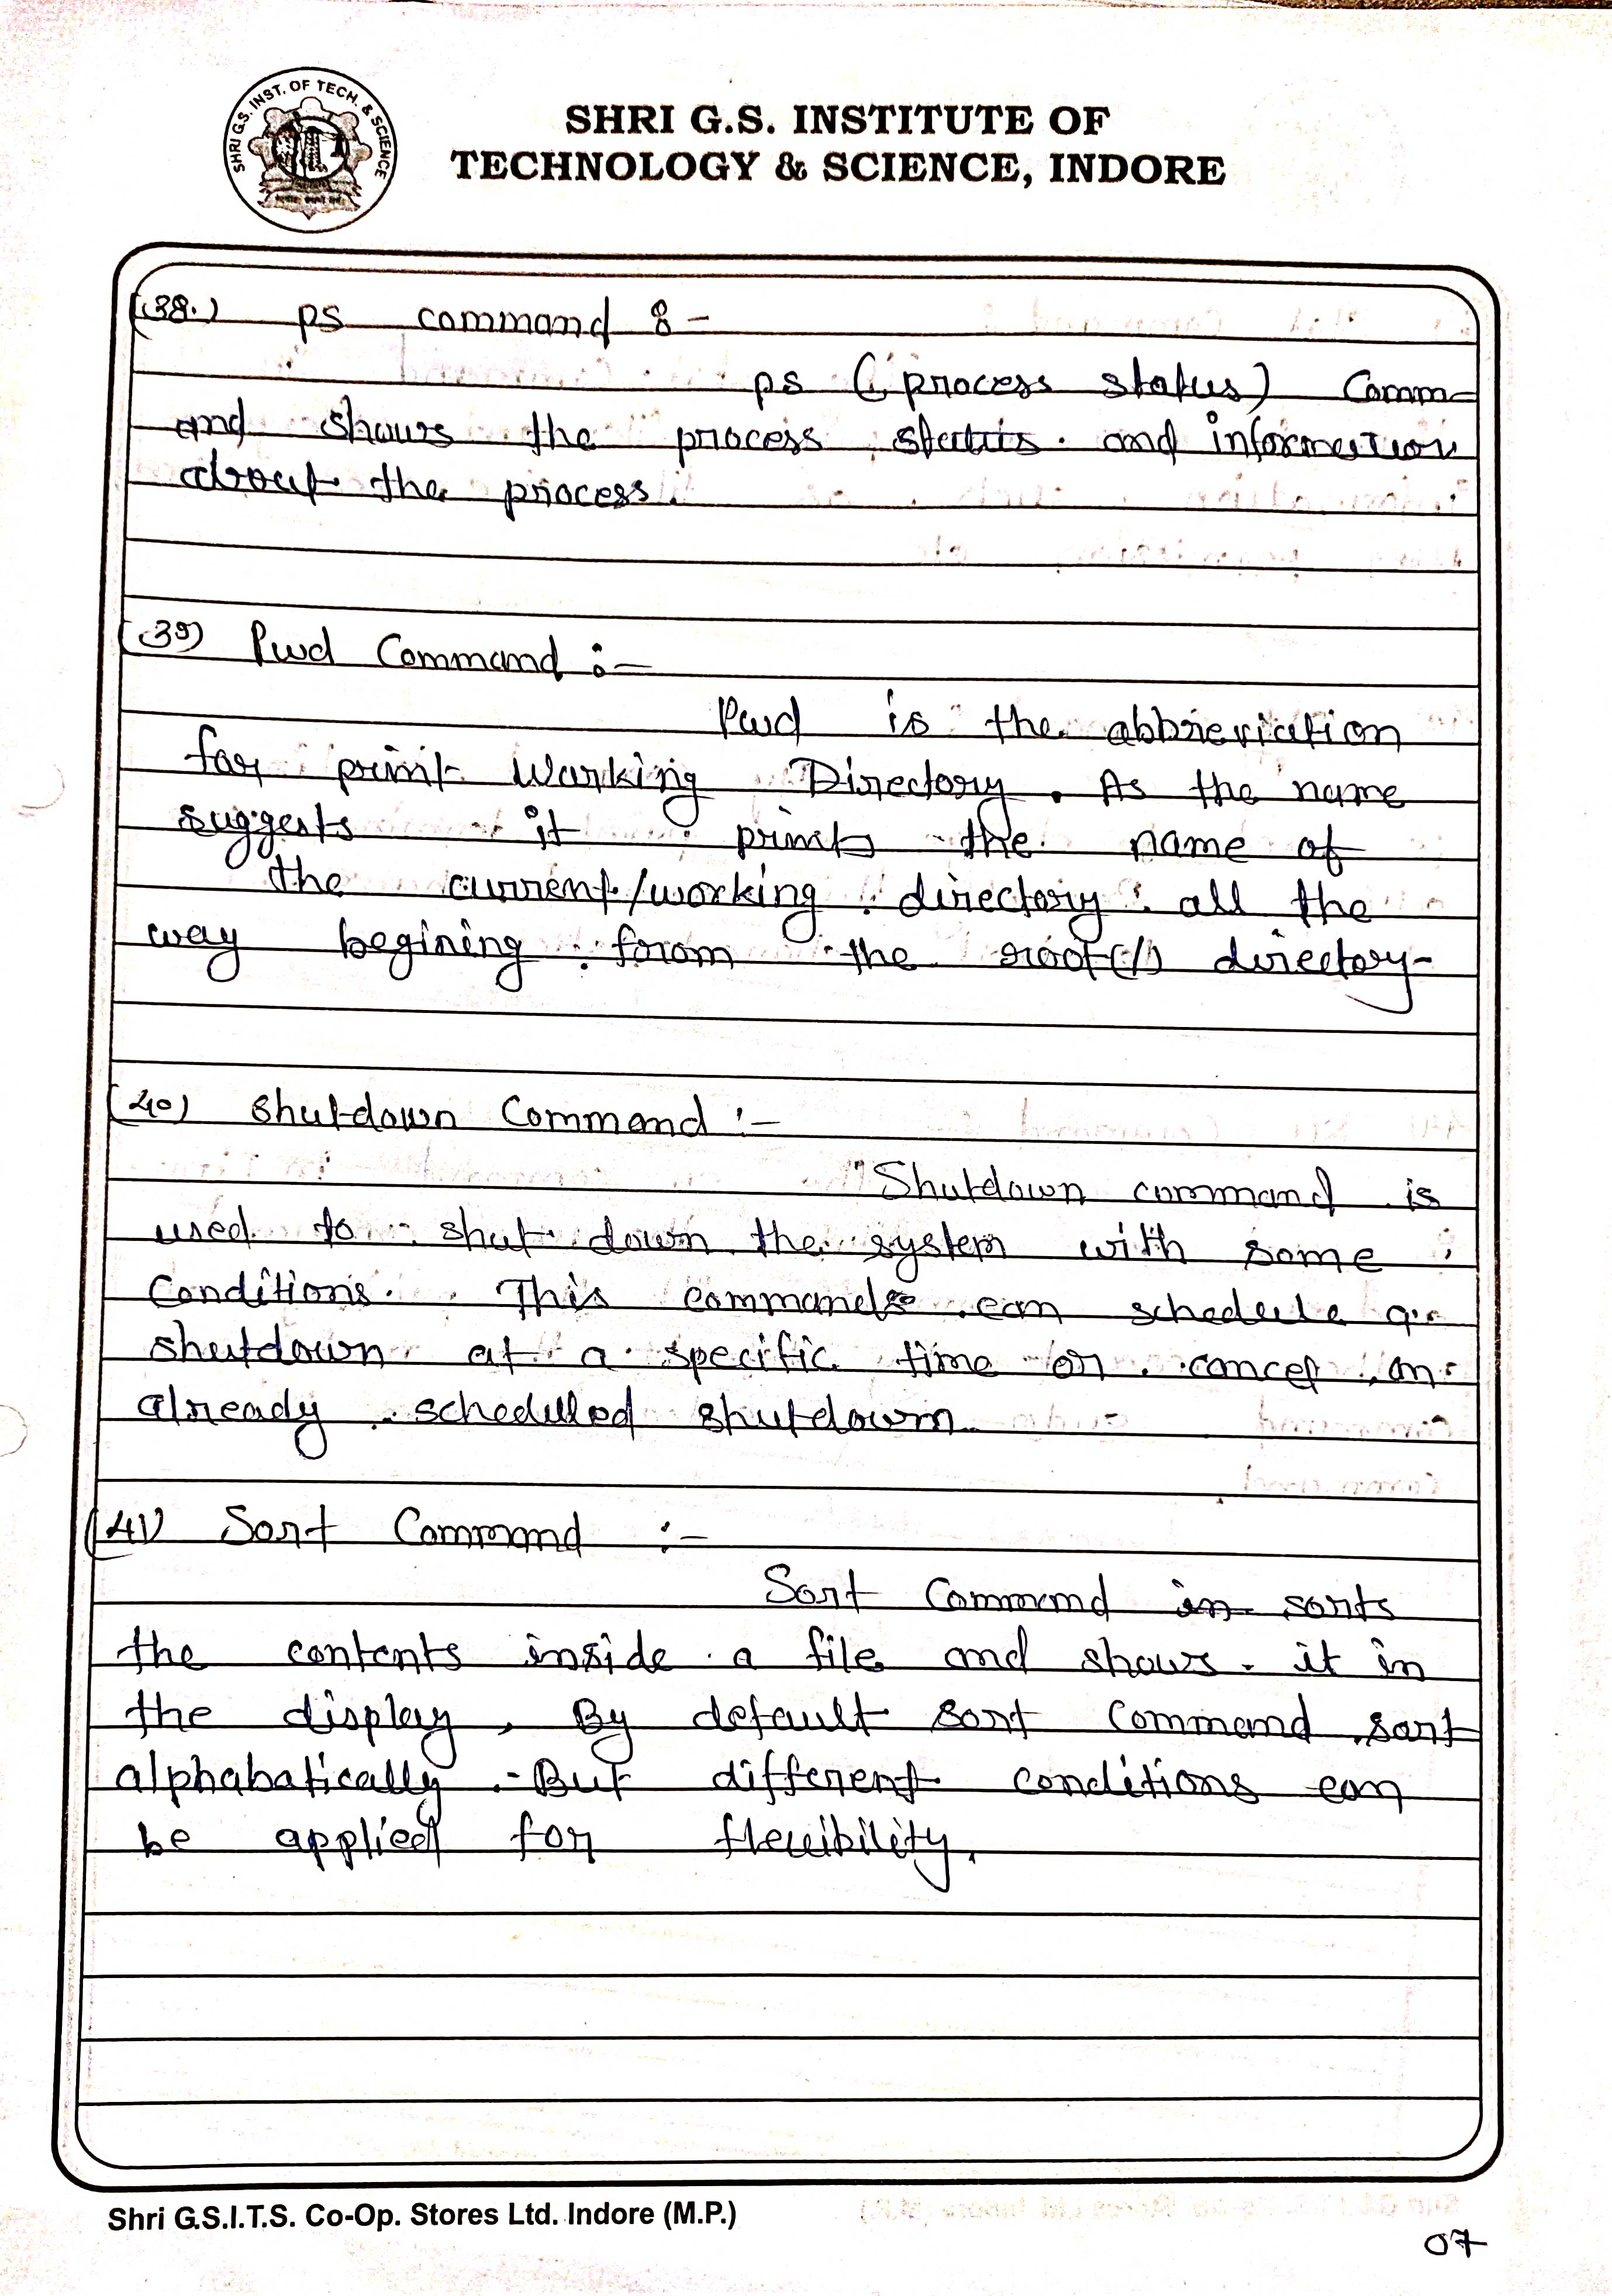 SHRI G.S. INST. OF TECH. & SCIENCE
SHRI G.S. INSTITUTE OF
TECHNOLOGY & SCIENCE, INDORE
(38.) ps command :-
ps (process status) Comm-
and shows the process status. and information
about the process.
(39) Pwd Command :-
Pwd is the abbreviation
for print Working Directory. As the name
suggests it prints the name of
the current/working directory all the
way begining forom the root(/) directory-
(40) Shutdown Command :-
Shutdown command is
used to shut down the system with some
Conditions. This command can schedule a
shutdown at a specific time or cancel an
already schedulled shutdown
(41) Sort Command :-
Sort Command in sorts
the contents inside a file and shows it in
the display, By default sort Command sort
alphabatically. But different conditions can
be applied for flexibility.
Shri G.S.I.T.S. Co-Op. Stores Ltd. Indore (M.P.)
07